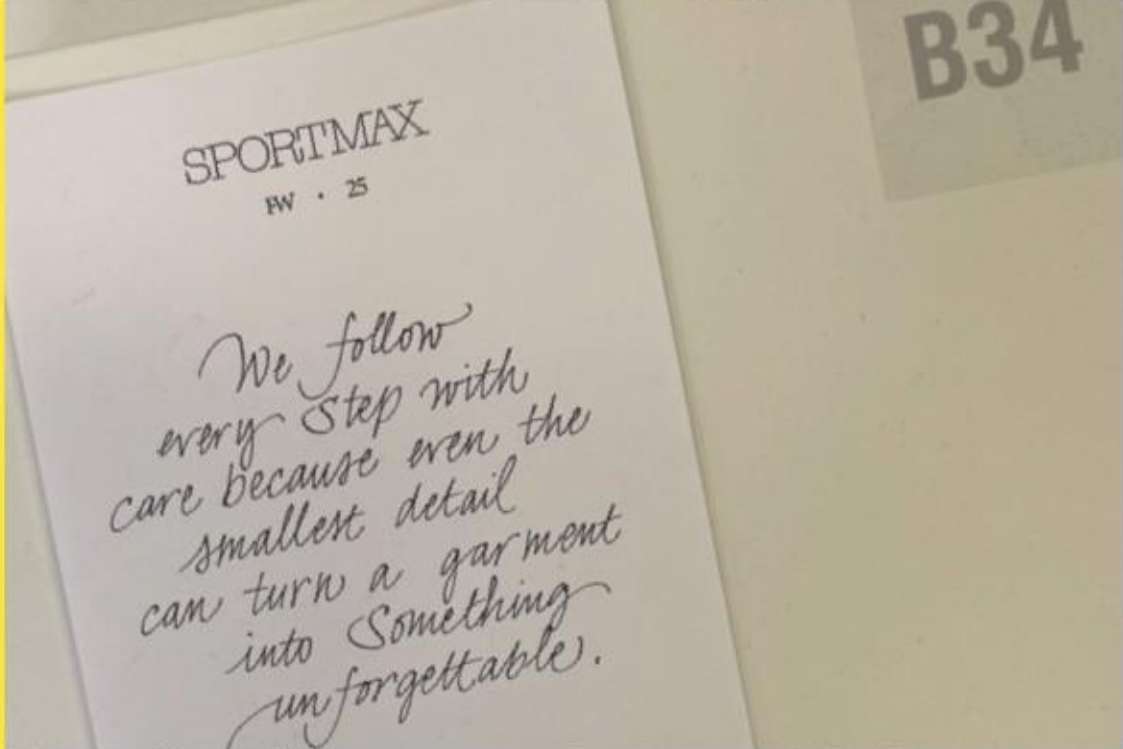 B34
SPORTMAX
FW · 25
We follow
every step with
care because even the
smallest detail
can turn a garment
into something
unforgettable.